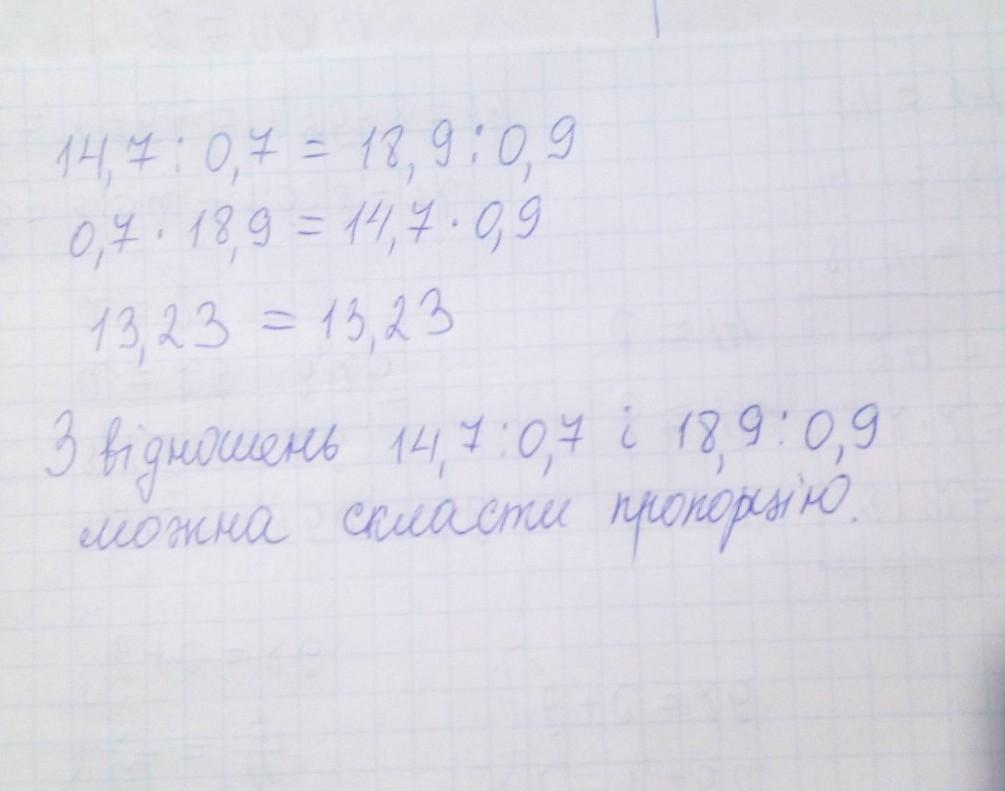 14,7 : 0,7 = 18,9 : 0,9
0,7 · 18,9 = 14,7 · 0,9
13,23 = 13,23
З відношень 14,7 : 0,7 і 18,9 : 0,9
можна скласти пропорцію.